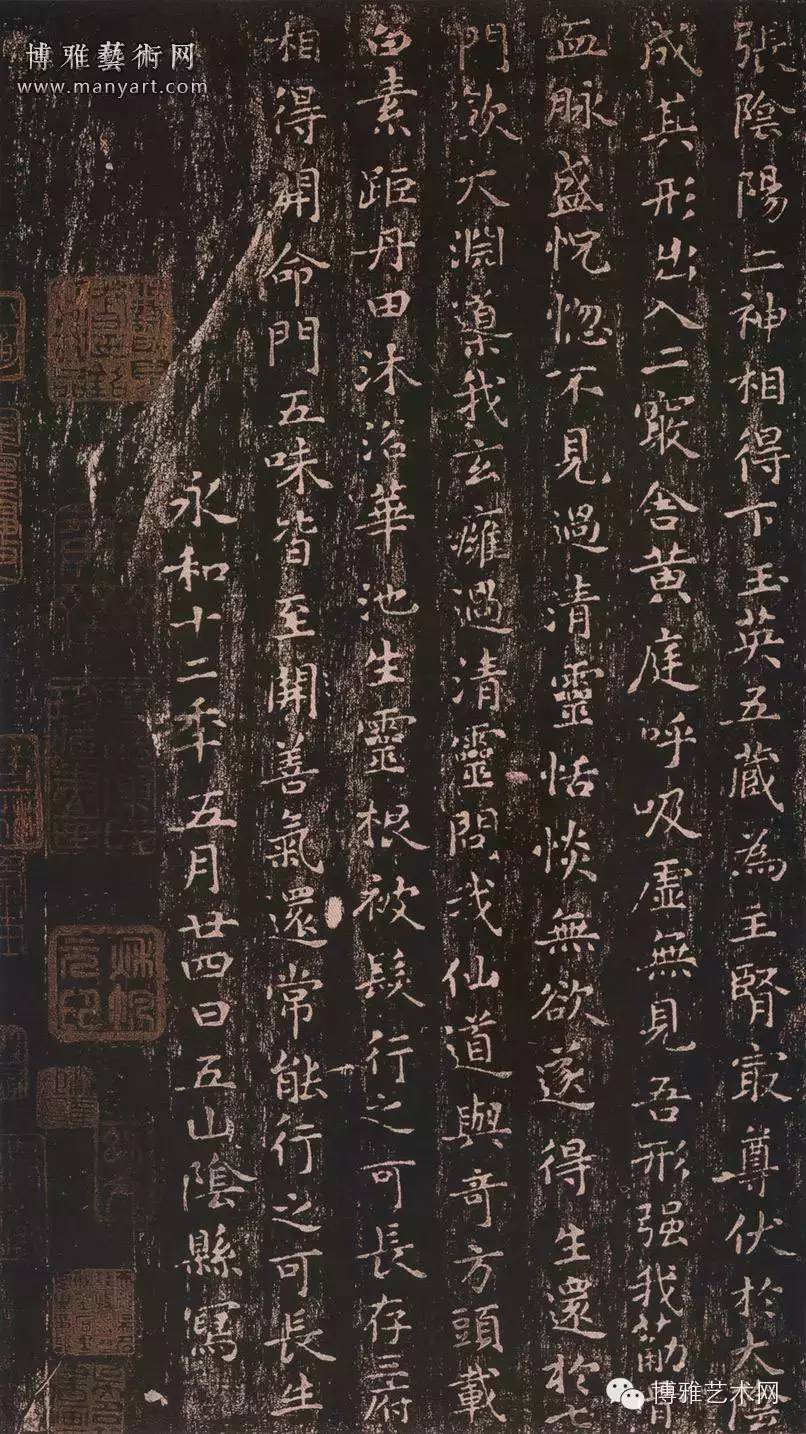 張陰陽二神相得下玉英五藏為主腎最尊伏於太陰
成其形出入二竅舍黃庭呼吸虛無見吾形强我筋骨
血脉盛恍惚不見過清靈恬惔無欲遂得生還於七
門飲大淵導我玄癰過清靈問我仙道與奇方頭載
白素距丹田沐浴華池生靈根被髮行之可長存三府
相得開命門五味皆至開善氣還常能行之可長生
永和十二年五月廿四日五山陰縣寫
博雅藝術网
www.manyart.com
博雅艺术网